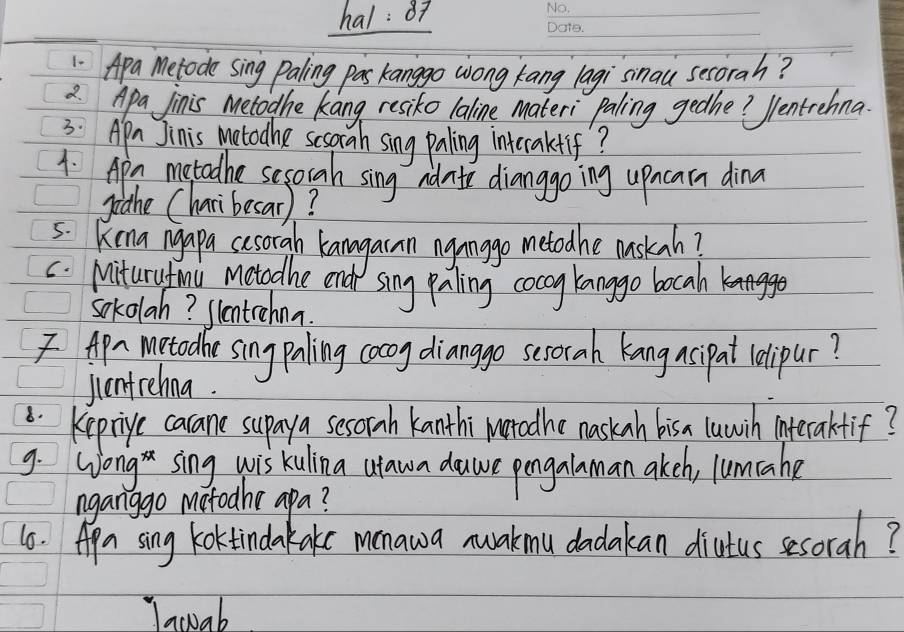 hal : 87
No.
Date.
1. Apa Metode sing paling pas kanggo wong kang lagi sinau sesorah?
2. Apa jinis Metodhe kang resiko laline Materi paling gedhe? Jlentrehna.
3. Apa Jinis metodhe sesorah sing paling interaktif?
4. Apa metodhe sesorah sing adate dianggo ing upacara dina
gedhe (hari besar)?
5. Kena ngapa cesorah kanagaran nganggo metodhe naskah?
6. Miturutmu Metodhe endi sing paling cocog kanggo bocah kanggo
sekolah? Jlentrehna.
7 Apa metodhe sing paling cocog dianggo sesorah kang asipat lelipur?
jlentrehna.
8. Kepriye carane supaya sesorah kanthi metodhe naskah bisa luwih interaktif?
9. Wong** sing wis kulina utawa duwe pengalaman akeh, lumrahe
nganggo metodhe apa?
10. Apa sing koktindakake menawa awakmu dadakan diutus sesorah?
Jawab